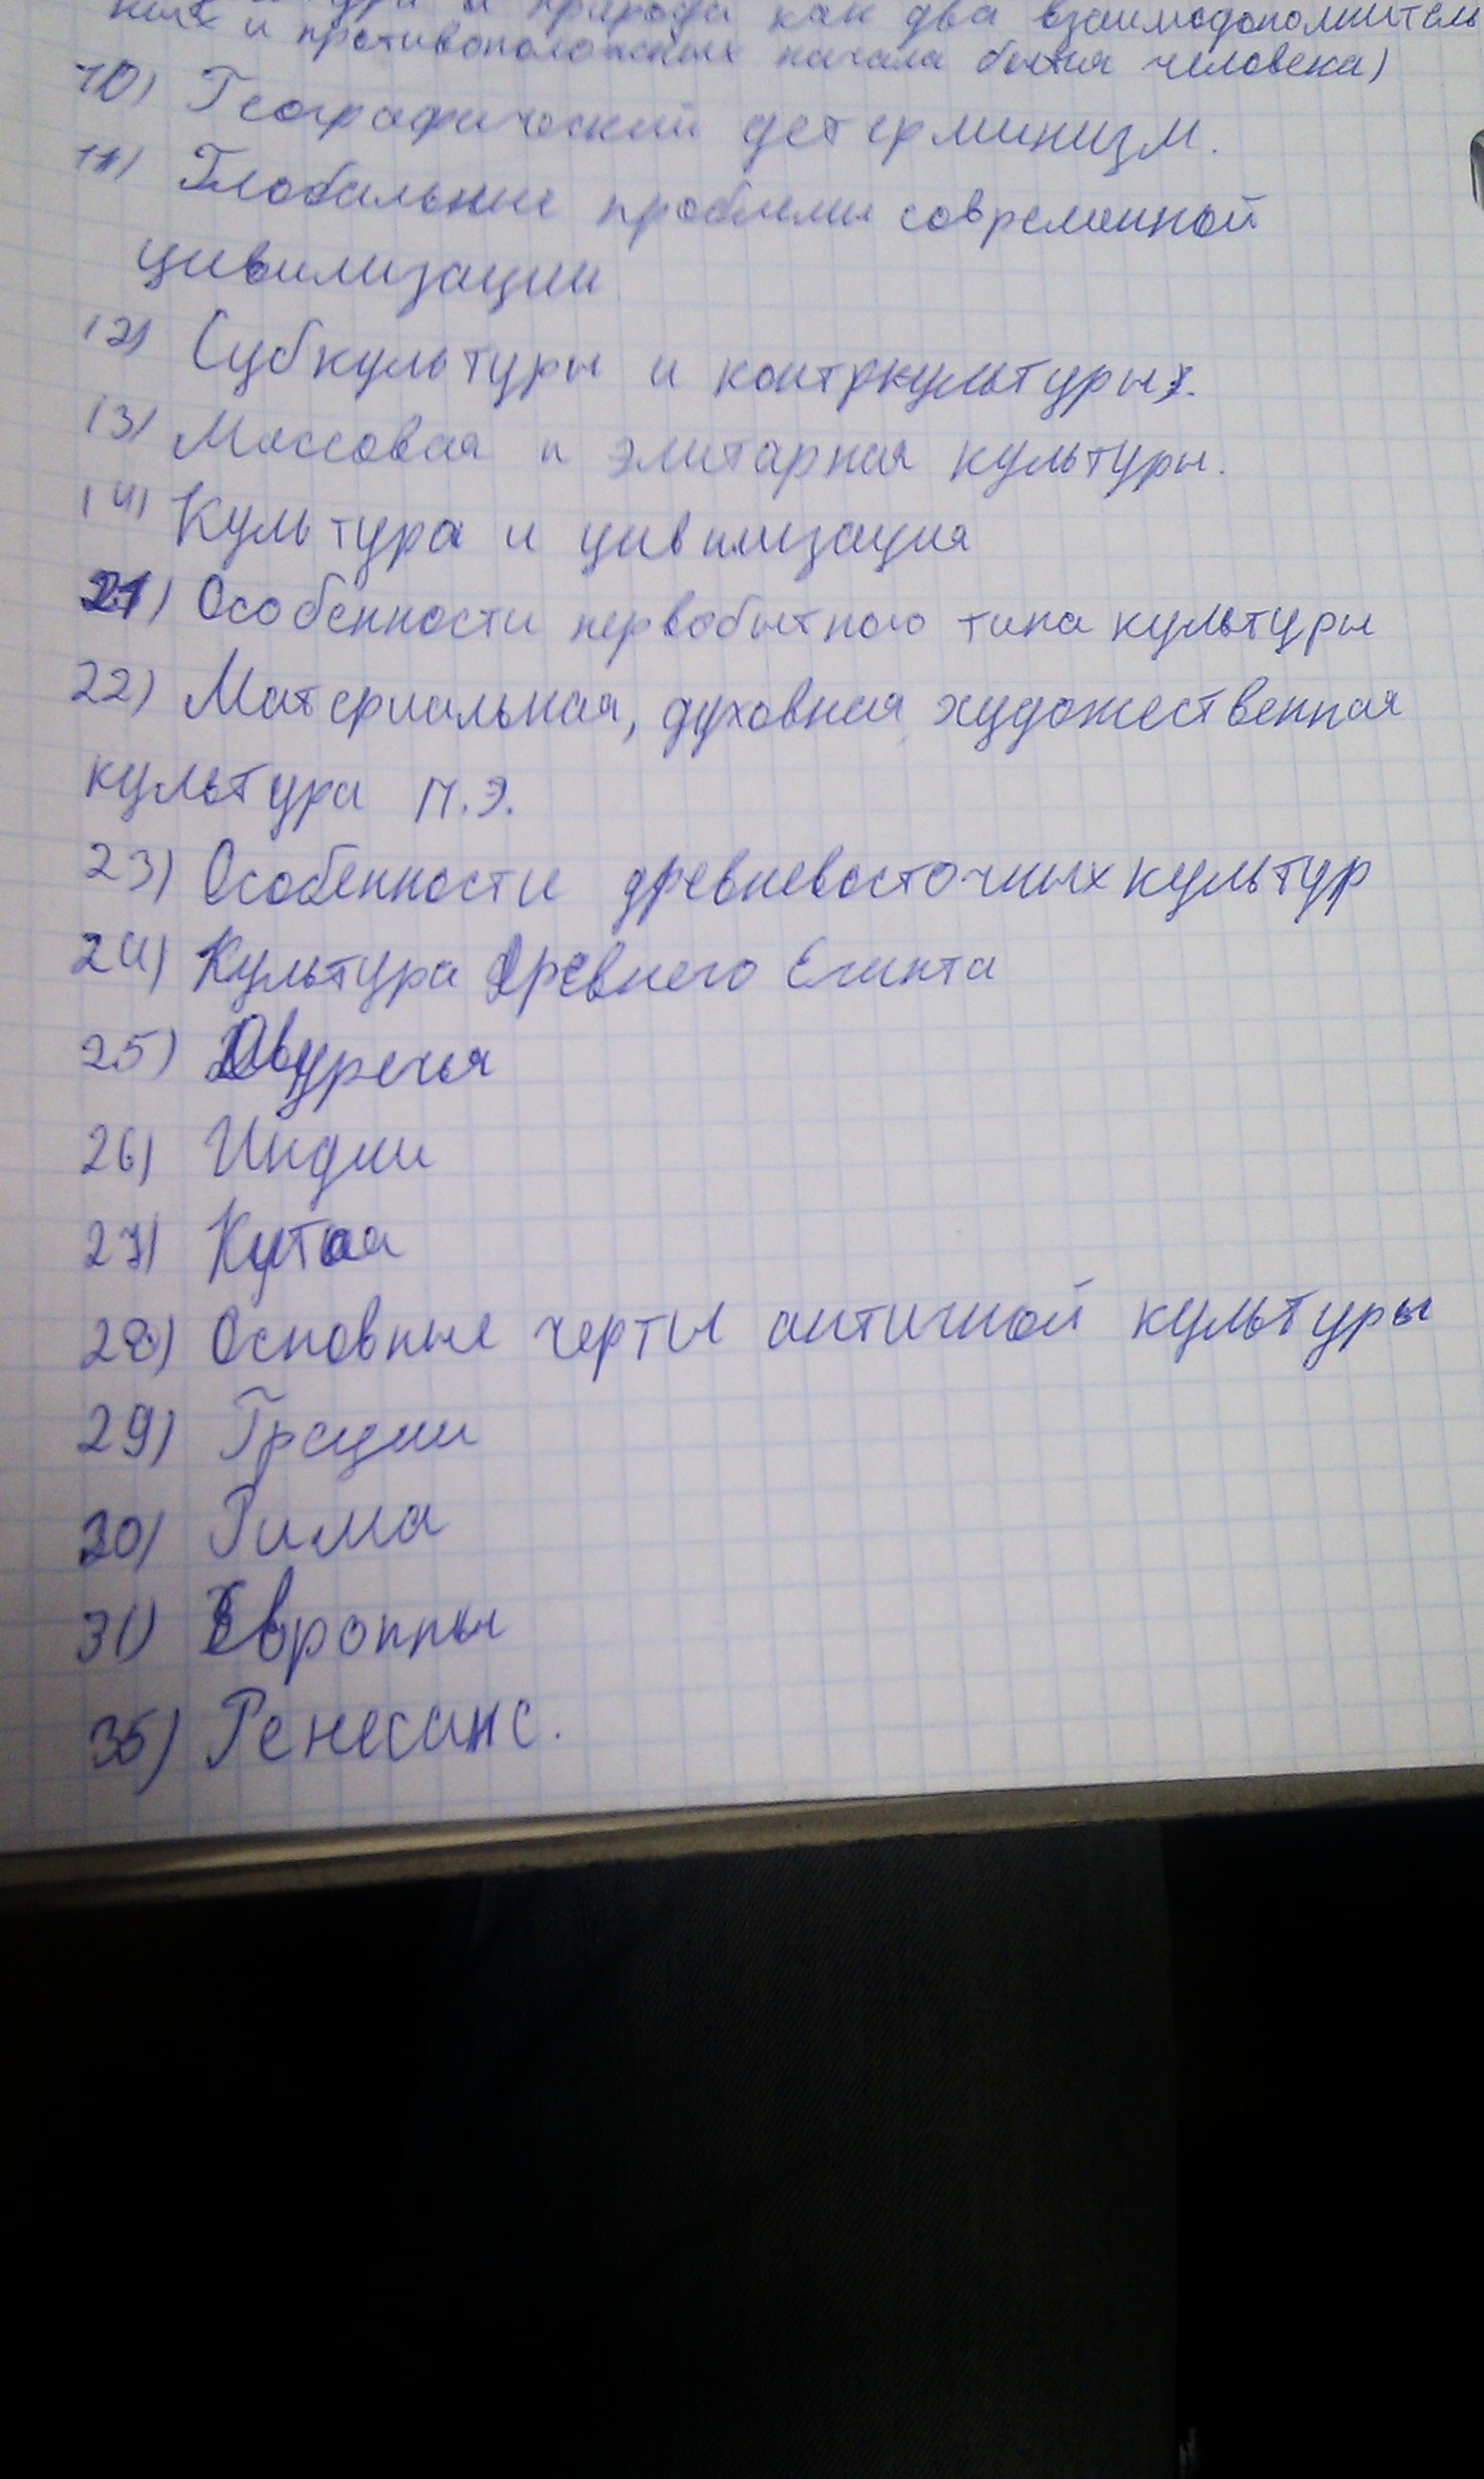 и природа как два взаимодополнитель
ных и противоположных начала бытия человека)
10) Географический детерминизм.
11) Глобальные проблемы современной
цивилизации
12) Субкультуры и контркультуры.
13) Массовая и элитарная культуры.
14) Культура и цивилизация
21) Особенности первобытного типа культуры
22) Материальная, духовная, художественная
культура П.Э.
23) Особенности древневосточных культур
24) Культура Древнего Египта
25) Двуречья
26) Индии
27) Китая
28) Основные черты античной культуры
29) Греции
30) Рима
31) Европпы
35) Ренесанс.